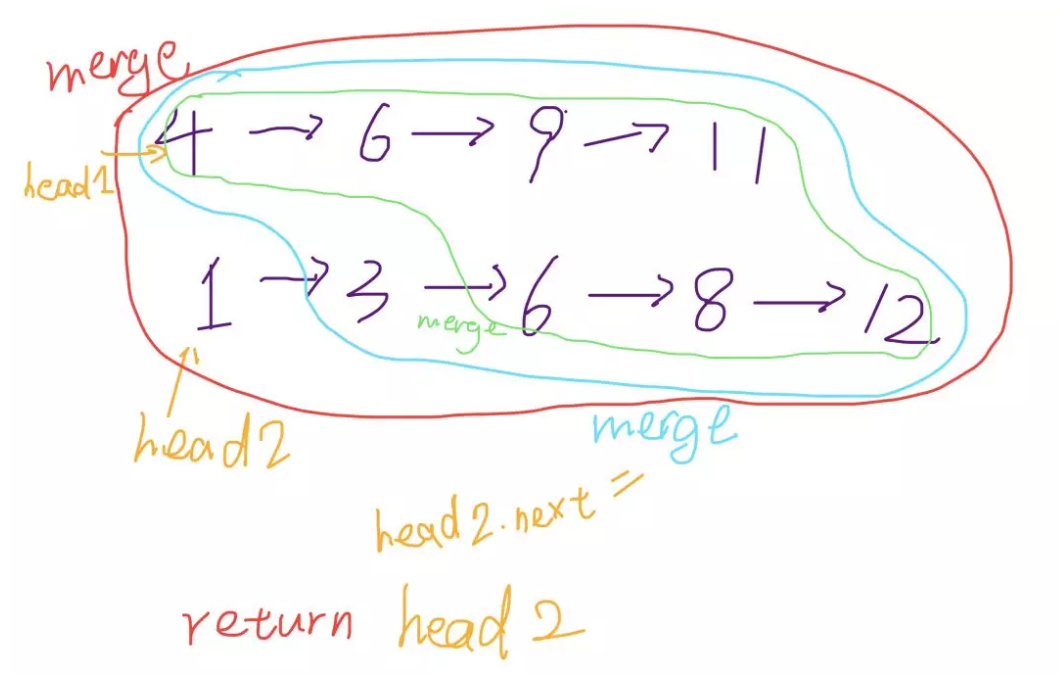 merge
4 → 6 → 9 → 11
head1
1 → 3 → 6 → 8 → 12
merge
head2
merge
head2.next =
return head2